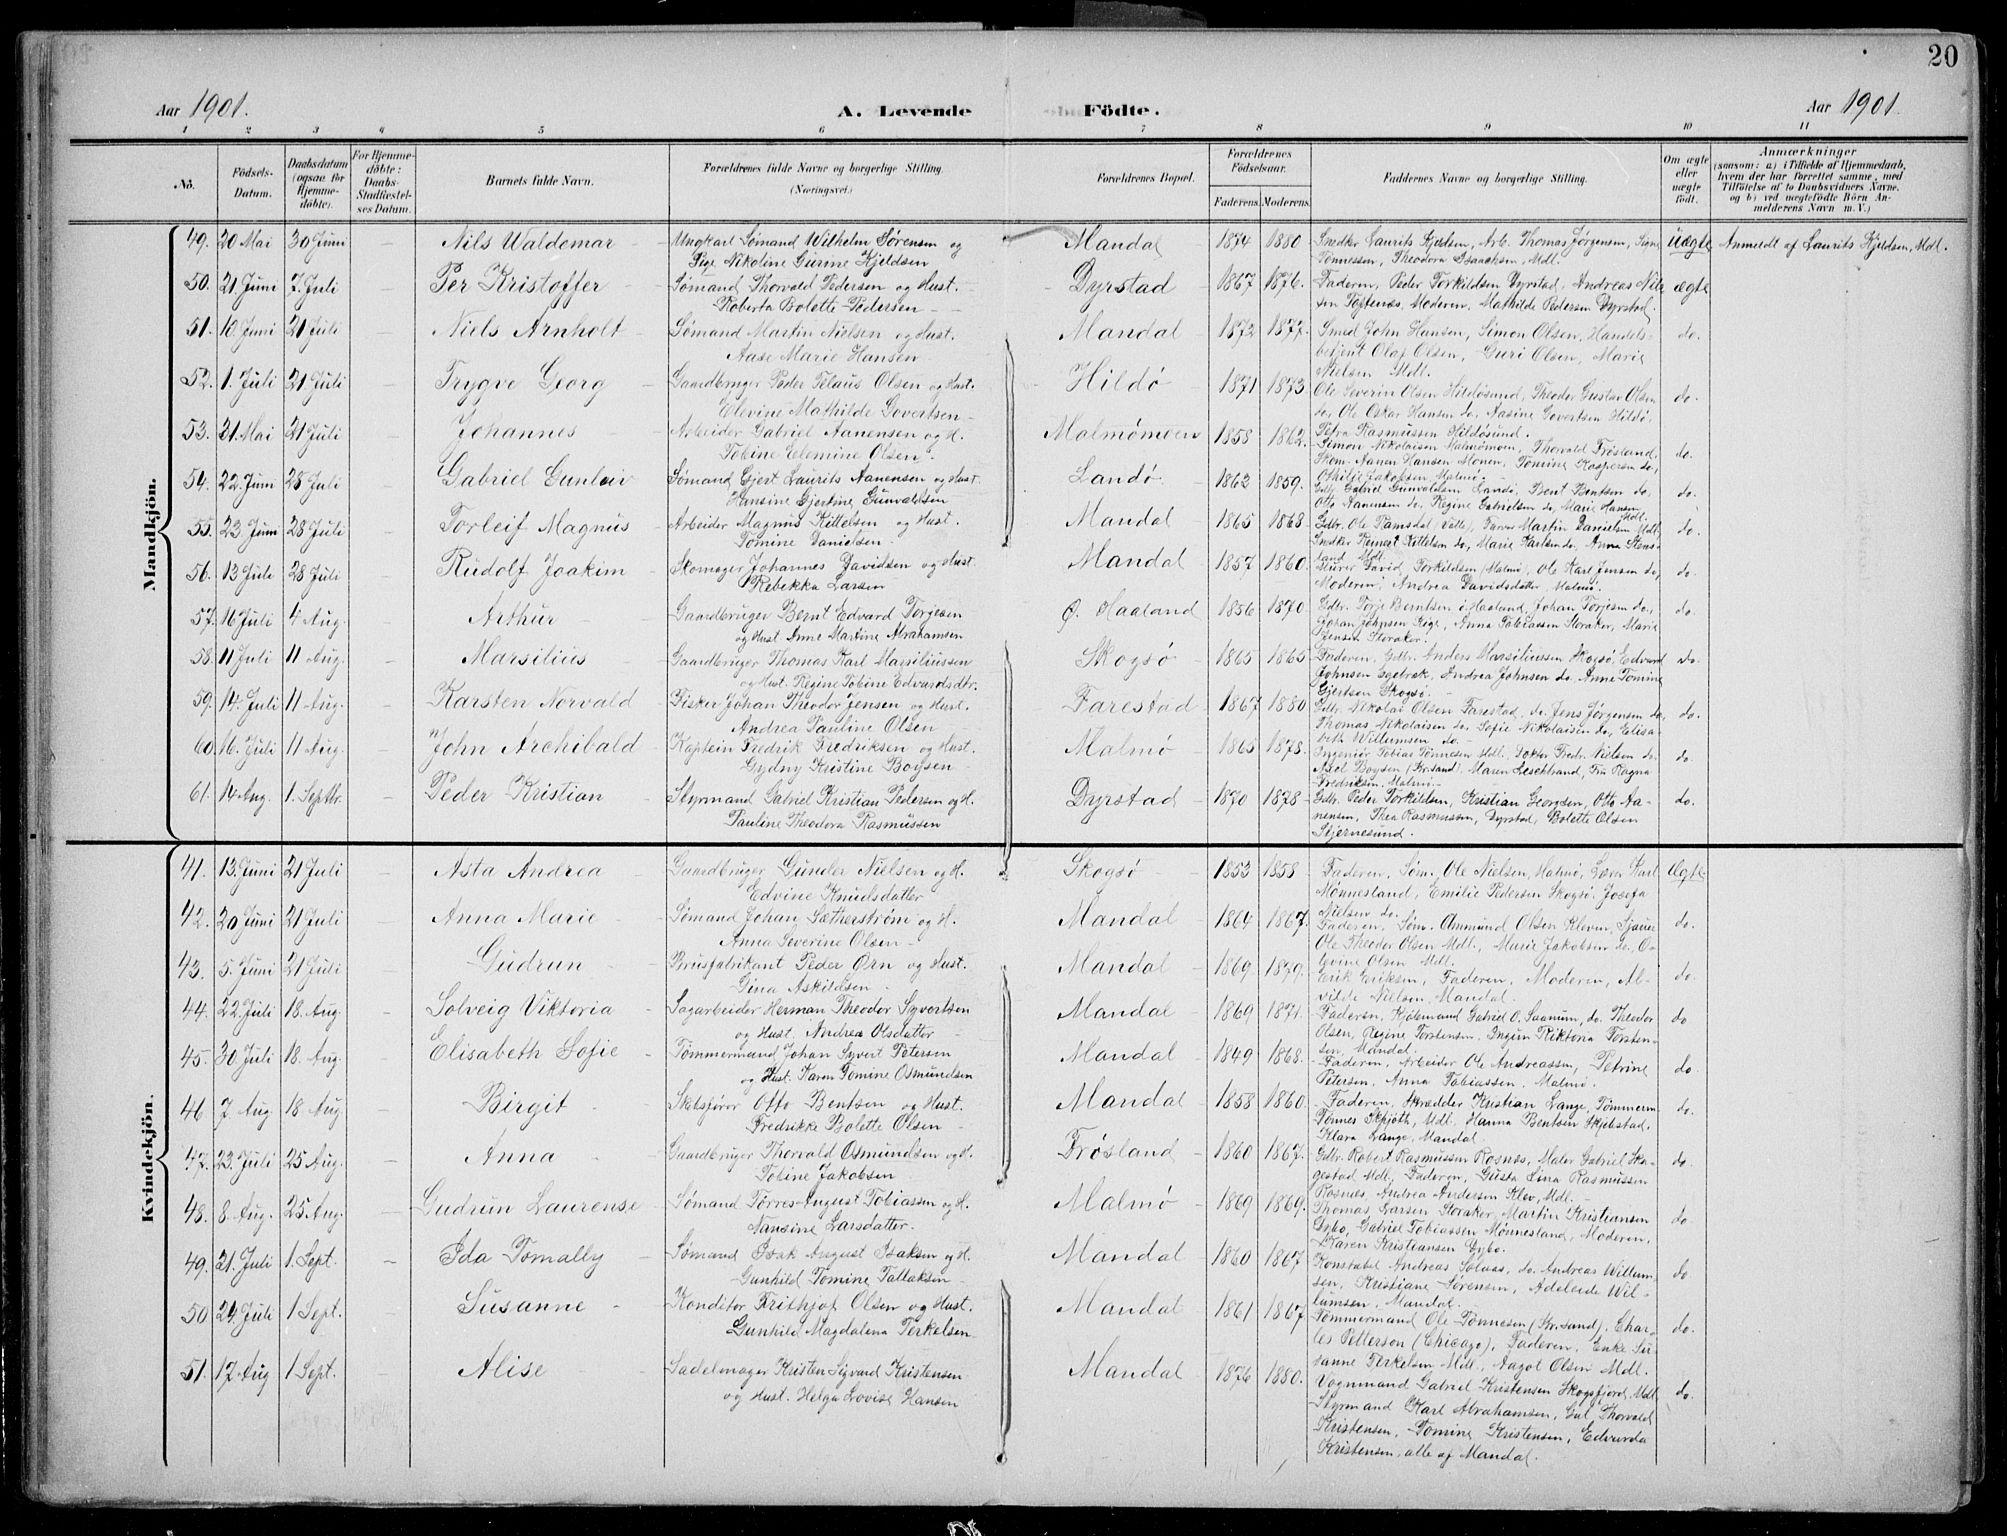 20
Aar 1901. A. Levende Födte. Aar 1901.
1 2 3 4 5 6 7 8 9 10 11
No. Födsels-Datum. Daabsdatum (ogsaa for Hjemme-döbte). For Hjemme-döbte: Daabs-Stadfæstel-ses Datum. Barnets fulde Navn. Forældrenes fulde Navne og borgerlige Stilling. (Næringsvei.) Forældrenes Bopæl. Forældrenes Födselsaar. Faderens. Moderens. Faddernes Navne og borgerlige Stilling. Om ægte eller uægte födt. Anmærkninger (saasom: a) i Tilfælde af Hjemmedaab, hvem der har forrettet samme, med Tilföielse af to Daabsvidners Navne, og b) ved uægtefödte Börn An-melderens Navn m. V.)
Mandkjön.
49. 20 Mai 30 Juni – Nils Waldemar Ungkarl Sømand Wilhelm Sørensen og Mandal 1874 1880 Snedker Laurits Kjelsen, Arb. Thomas Jørgensen, Signe uægte Anmeldt af Laurits Kjeldsen, Mdl.
Pige Nikoline Gurine Kjeldsen Tønnessen, Theodora Isaachsen, Mdl.
50. 21 Juni 7. Juli – Per Kristoffer Sømand Thorvald Pedersen og Hust. Dyrstad 1867 1876. Faderen, Peder Torkildsen Dyrstad, Andreas Nil- ægte
Roberta Bolette Pedersen – sen Toftenæs, Moderen, Mathilde Pedersen Dyrstad.
51. 10 Juni 21 Juli – Niels Arnholt Sømand Martin Nielsen og Hust. Mandal 1872 1877. Smed John Hansen, Simon Olsen, Handels- do.
Aase Marie Hansen betjent Olaf Olsen, Guri Olsen, Marie
Nielsen Mdl.
52. 1. Juli 21 Juli – Trygve Georg Gaardbruger Peder Telaus Olsen og Hust. Hildø 1871 1873 Ole Severin Olsen Hildøsund, Theodor Gustav Olsen do.
Elevine Mathilde Govertsen – do, Ole Oskar Hansen do, Aasine Govertsen Hildø,
Petra Rasmussen Hildøsund.
53. 31. Mai 21 Juli – Johannes Arbeider Gabriel Aanensen og H. Malmømoen 1858 1862. Simon Nikolaisen Malmømoen, Thorvald Frøsland, do.
Tobine Elemine Olsen. Skom. Aanen Hansen Monen, Tomine Kaspersen do,
Othilie Jakobsen, Malmø.
54. 22. Juni 28 Juli – Gabriel Gunleiv Sømand Gjert Laurits Aanensen og Hust. Landø 1863 1859. Gdbr. Gabriel Gunvaldsen Landø, Bent Bentsen do, do.
Hansine Gjertine Gunvaldsen Otto Aanensen do, Regine Gabrielsen do, Marie Hansen
Mdl.
55. 23. Juni 28 Juli – Torleif Magnus Arbeider Magnus Kittelsen og Hust. Mandal 1865 1868 Gdbr. Ole Ramsdal (Valle), Farver Martin Danielsen Mdl, do.
Tomine Danielsen. Snedker Reinert Kittelsen do, Marie Karlsen do, Anna Stens-
land Mdl.
56. 13 Juli 28 Juli – Rudolf Joakim Skomager Johannes Davidsen og Hust. Mandal 1857 1860. David Torkildsen (Malmø), Ole Karl Jensen do, do.
Rebekka Larsen Moderen, Andrea Davidsdatter, Malmø.
57. 16 Juli 4 Aug. – Arthur Gaardbruger Bernt Edvard Torjesen Ø. Haaland 1856 1870. Gdbr. Torje Berntsen i Haaland, Johan Torjesen do, do.
og Hust. Anne Martine Abrahamsen Johan Johnsen Rige, Anna Tobiassen Storaker, Marie
Jensen Storaker.
58. 11 Juli 11 Aug. – Marsilius Gaardbruger Thomas Karl Marsiliussen Skogsø 1865 1865 Faderen, Gdbr. Anders Marsiliussen Skogsø, Edvard do.
og Hust. Regine Tobine Edvardsdtr. Johnsen Egebæk, Andrea Johnsen do, Anne Tomine
Gjertsen Skogsø.
59. 14. Juli 11 Aug. – Karsten Norvald Fisker Johan Theodor Jensen og Hust. Farestad 1867 1880 Gdbr. Nikolai Olsen Farestad, do. Jens Jørgensen do, do.
Andrea Pauline Olsen Thomas Nikolaisen do, Sofie Nikolaisen do, Elisa-
beth Willumsen do.
60. 16. Juli 11 Aug. – John Archibald Kaptein Fredrik Fredriksen og Hust. Malmø 1865 1878. Ingeniør Tobias Tønnesen Mdl. Doktor Fredr. Nielsen do. do.
Gydny Kristine Boysen Axel Boysen (Kr.sand), Maren Leschbrand, Fru Ragna
Fredriksen, Malmø.
61. 14 Aug. 1. Septbr. – Peder Kristian Styrmand Gabriel Kristian Pedersen og H. Dyrstad 1870 1878 Gdbr. Peder Torkildsen, Kristian Georgsen, Otto Aa- do.
Pauline Theodora Rasmussen nensen, Thea Rasmussen, Dyrstad, Bolette Olsen
Skjernesund.
Kvindekjön.
41. 13. Juni 21 Juli – Asta Andrea Gaardbruger Gunder Nielsen og H. Skogsø 1853 1858 Faderen, Søm. Ole Nielsen, Malmø, Lærer Karl Ægte
Edvine Knudsdatter Mønnesland, Emilie Pedersen Skogsø, Josefa
Nielsen do.
42. 20 Juni 21 Juli – Anna Marie Sømand Johan Sætherstrøm og H. Mandal 1864 1867. Faderen, Søm. Osmund Olsen Kleven, Sjauer do.
Anna Severine Olsen – Ole Theodor Olsen Mdl., Marie Jakobsen do, O-
levine Olsen Mdl.
43. 5. Juni 21 Juli – Gudrun Brusfabrikant Peder Ørn og Hust. Mandal 1869. 1879. Erik Eriksen, Faderen, Moderen, Al- do.
Dina Askildsen vilde Nielsen, Mandal.
44. 22. Juli 18. Aug. – Solveig Viktoria Sagarbeider Herman Theodor Syvertsen Mandal 1869 1871. Faderen, Kjøbmand Gabriel O. Saanum, do. Theodor do
og Hust. Andrea Olsdatter Olsen, Regine Torstensen, Ingun Viktoria Torsten-
sen, Mandal.
45. 30 Juli 18. Aug. – Elisabeth Sofie Tømmermand Johan Syvert Petersen Mandal 1849 1868. Faderen, Arbeider Ole Andreassen, Petrine do.
og Hust. Karen Tomine Osmundsen Petersen, Anna Tobiassen, Malmø.
46. 7 Aug. 18 Aug. – Birgit Skibsfører Otto Bentsen og Hust. Mandal 1858 1860. Faderen, Skrædder Kristian Lange, Tømmerm. do.
Fredrikke Bolette Olsen – Tønnes Skjøth, Mdl. Hanna Bentsen Skjebstad,
Klara Lange, Mandal.
47. 23. Juli 25 Aug. – Anna Gaardbruger Thorvald Osmundsen og H. Frøsland 1860 1867. Gdbr. Robert Rasmussen Rosnæs, Maler Gabriel Ska- do.
Tobine Jakobsen gestad Mdl, Faderen, Gusta Lina Rasmussen
Rosnæs, Andrea Andersen Klev, Mdl.
48. 8. Aug. 25 Aug. – Gudrun Laurense Sømand Torres August Tobiassen og H. Malmø 1869 1869. Thomas Larsen Storaker, Martin Kristiansen do
Nansine Larsdatter. Gybo, Gabriel Tobiassen Mønnesland, Moderen,
Karen Kristiansen Gybo.
49. 21. Juli 1. Sept. – Ida Tomally Sømand Isak August Isaksen og H. Mandal 1860 1867 Konstabel Andreas Solaas, do. Andreas Willum- do
Gunhild Tomine Tallaksen sen, Kristiane Sørensen, Adeleide Wil-
lumsen, Mandal.
50 24. Juli 1 Sept. – Susanne Konditor Frithjof Olsen og Hust. Mandal 1861 1867 Tømmermand Ole Tønnesen (Kr.sand), Char- do.
Gunhild Magdalena Terkelsen les Petterson (Chicago), Faderen, Enke Su-
sanne Terkelsen Mdl, Aagot Olsen Mdl.
51. 17 Aug 1 Sept. – Alise Sadelmager Kristen Sigvard Kristensen Mandal 1876 1880. Vognmand Gabriel Kristensen Skogsfjord, Mdl, do.
og Hust. Helga Lovise Hansen Styrmand Karl Abrahamsen, Gul. Thorvald
Kristensen, Tomine Kristensen, Edvarda
Kristensen, alle af Mandal.